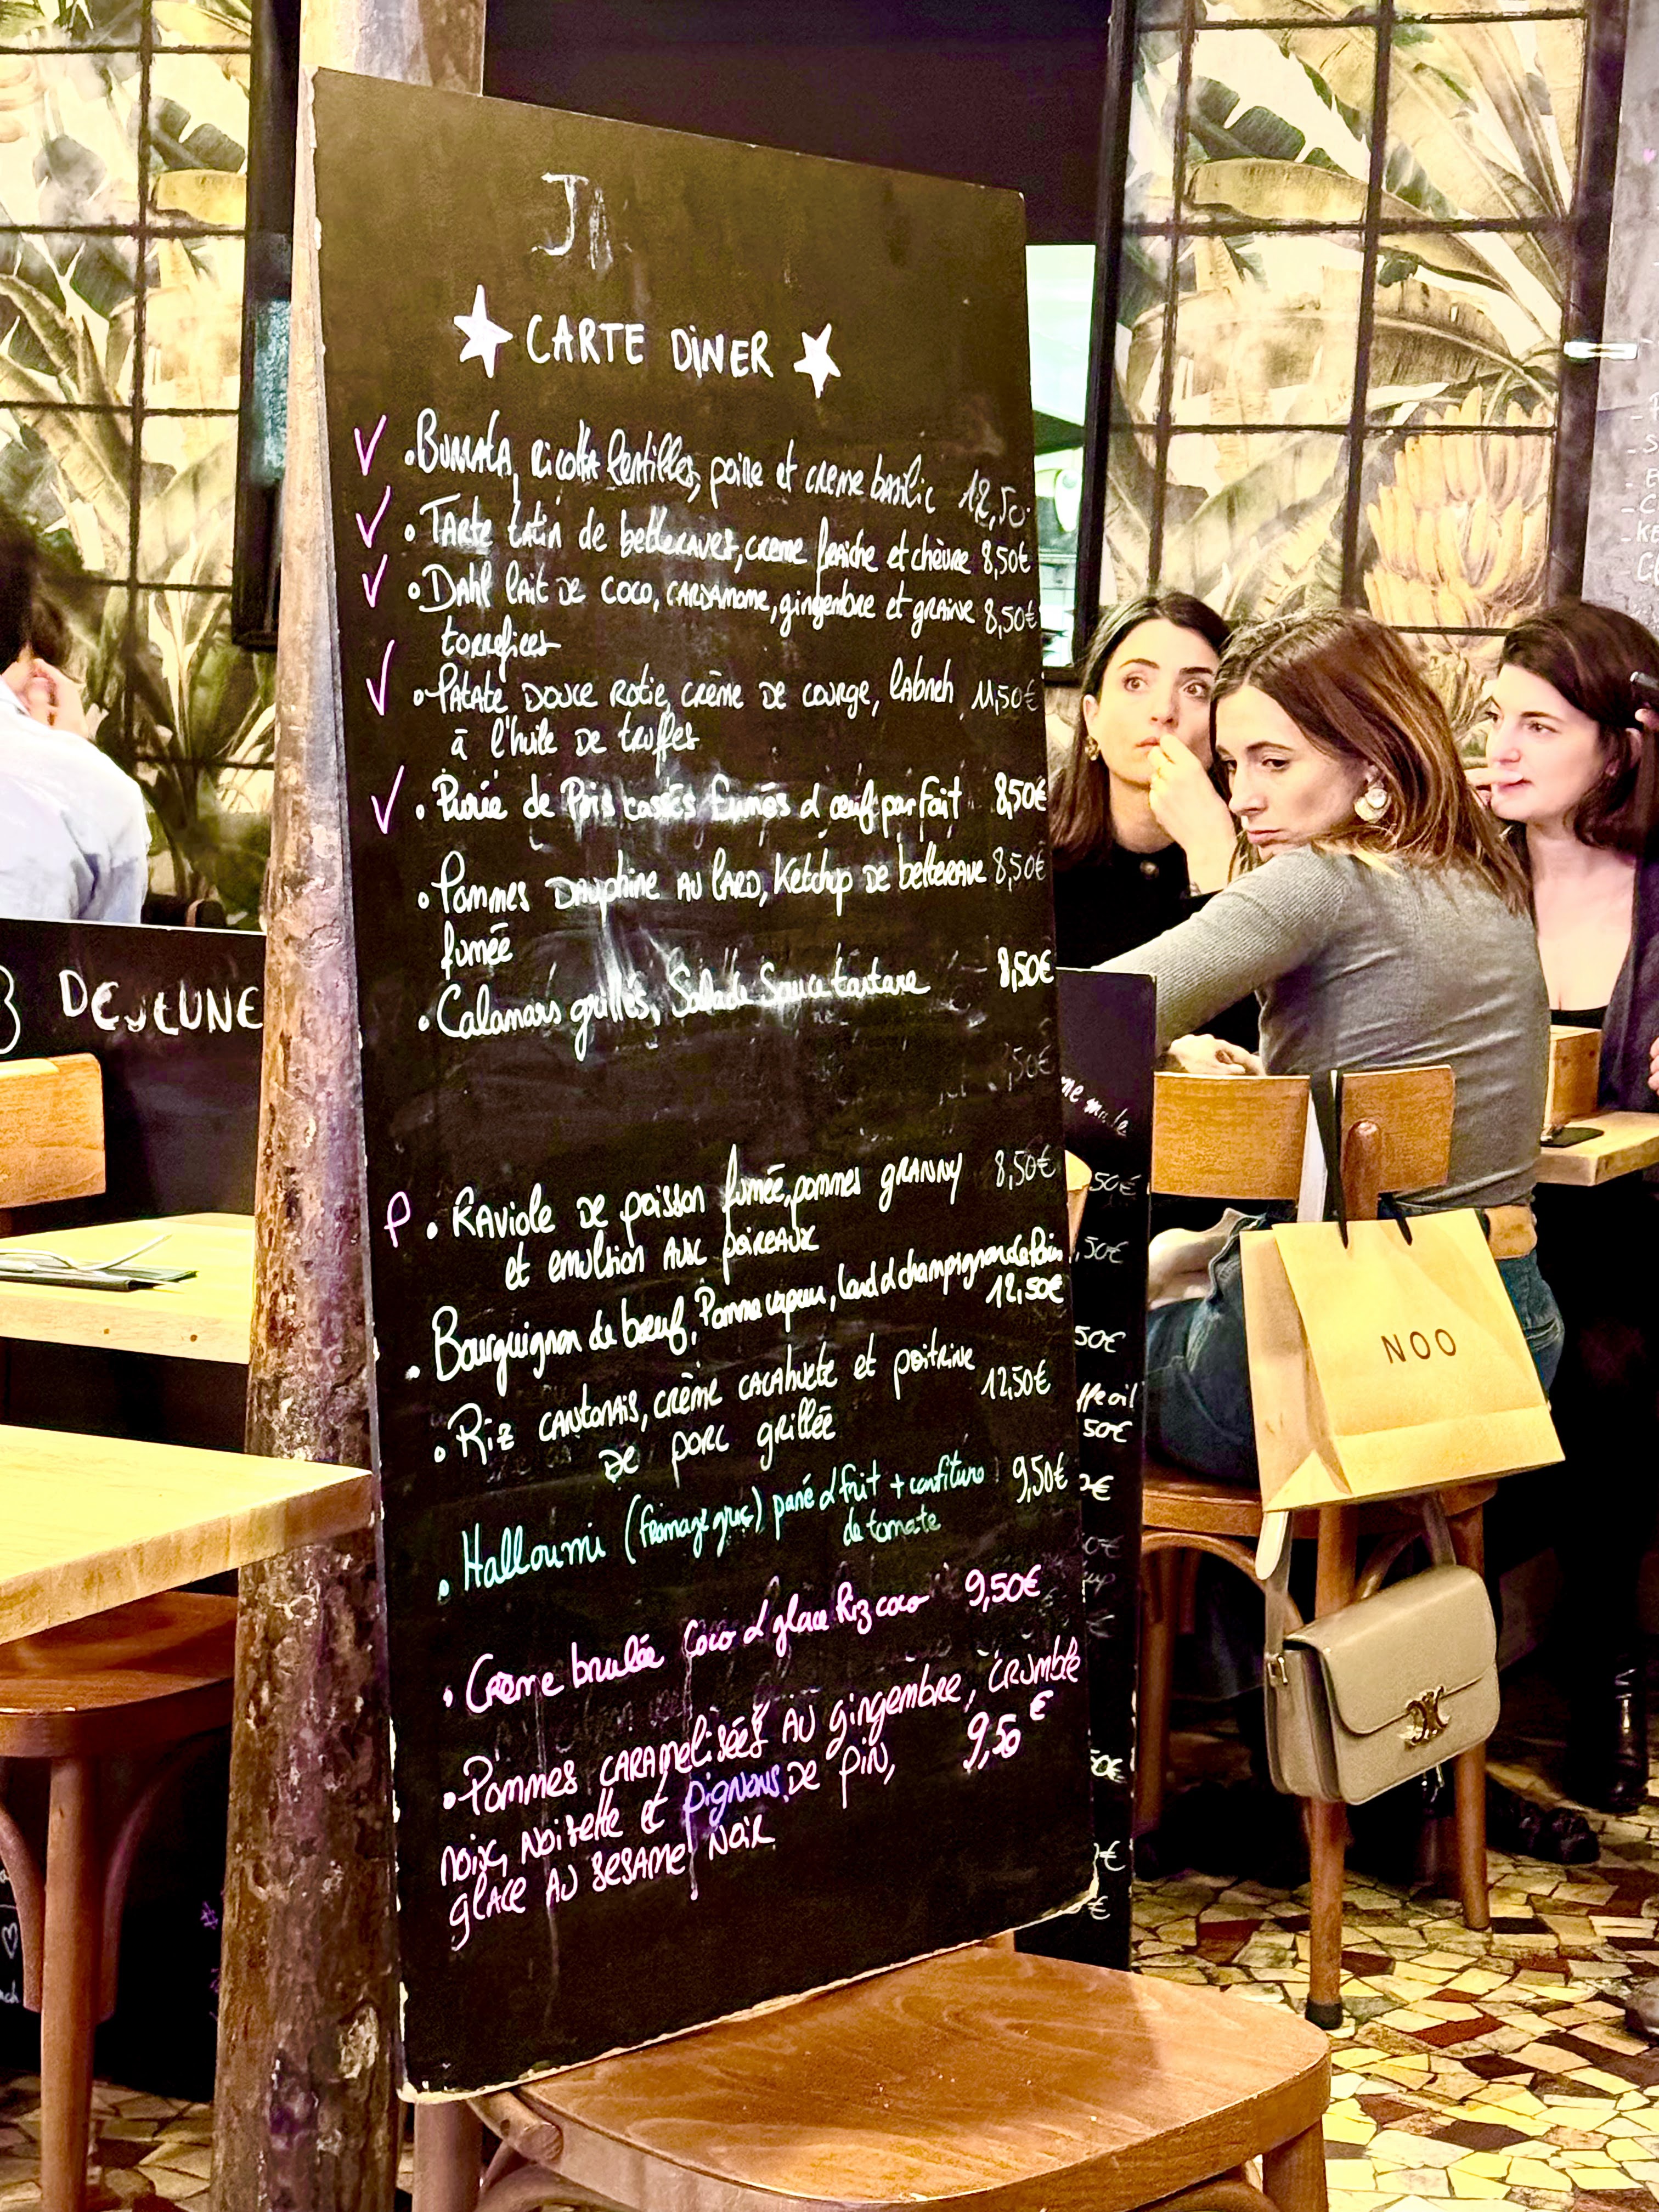 CARTE DÎNER
V • BURRATA, RICOTTA lentilles, poire et crème basilic 12,50
V • TARTE tatin de betteraves, creme fraiche et chèvre 8,50€
V • DAHL lait DE COCO, CARDAMOME, gingembre et graine 8,50€
torrefiees
V • PATATE DOUCE ROTIE, CRÈME DE COURGE, labneh 11,50€
à l'huile DE truffes
V • Purée de Pois cassés fumés & œuf parfait 8,50€
• POMMES DAUPHINE AU LARD, Ketchup DE betterave 8,50€
fumée
• Calamars grillés, Salade Sauce tartare 8,50€
,50€
P • RAViole DE poisson fumée, pommes GRANNY 8,50€
et emulsion AUX POIREAUX
• Bourguignon de bœuf, Pomme vapeur, lard & champignon de Paris
12,50€
• Riz CANTONAIS, CRÈME CACAHUETE et POITRINE 12,50€
DE PORC grillée
• Halloumi (fromage grec) pané & frit + confiture 9,50€
de tomate
• Crème brulée Coco & glace Riz coco 9,50€
• POMMES CARAMELISÉES AU gingembre, CRUMBLE
NOIX, NOISETTE ET PIGNONS DE PIN, 9,50 €
GLACE AU SESAME NOIR
DEJEUNE
NOO
me
50€
,50€
50€
ffe oil
50€
2€